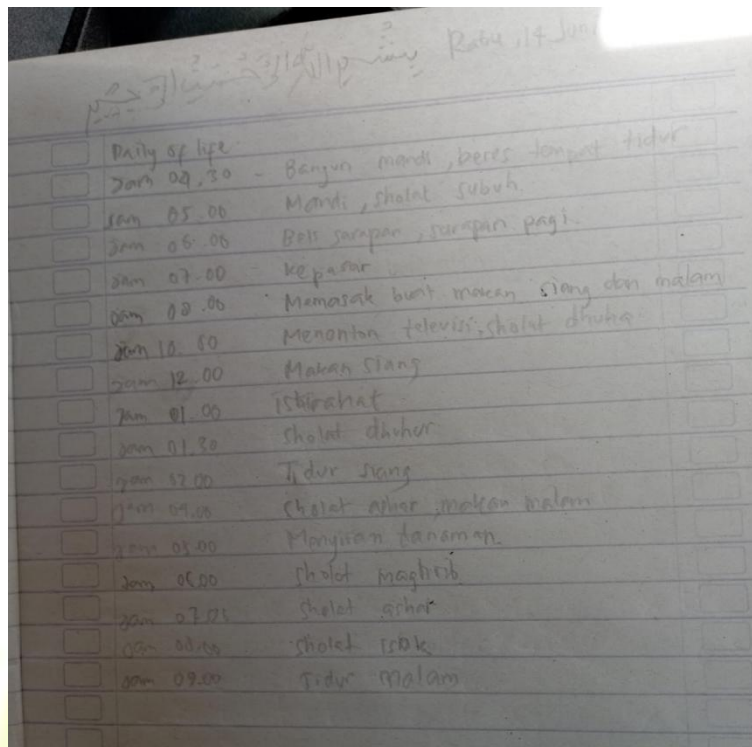 بسم الله الرحمن الرحيم Rabu, 14 Juni
Daily of life
Jam 04.30 - Bangun mandi, beres tempat tidur
Jam 05.00 Mandi, sholat subuh
Jam 06.00 Beli sarapan, sarapan pagi.
Jam 07.00 - kepasar
Jam 08.00 Memasak buat makan siang dan malam
Jam 10.00 Menonton televisi, sholat dhuha
Jam 12.00 Makan siang
Jam 01.00 istirahat
Jam 01.30 Sholat dhuhur
Jam 02.00 Tidur siang
Jam Sholat ashar, makan malam
Jam 05.00 Menyiram tanaman.
Jam 06.00 Sholat maghrib
Jam 07.05 Sholat ashar
Jam 08.00 Sholat
Jam 09.00 Tidur malam